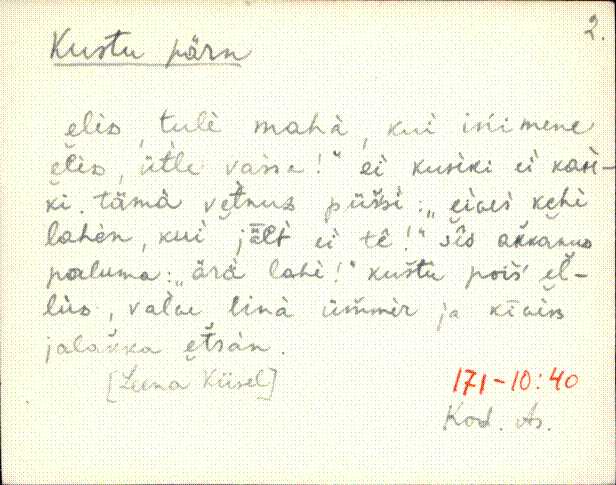 2.
Kustu pärn
elès, tulè mahà, kui inimene
elès, ütle vassa!" ei kusiki ei kasi-
ki. tämà vetnus püssi: „eivei kehi
lahèn, kui jält ei tē!" sīs akkanus
paluma: „ärà lahè!" kustù pois el-
lùs, valve linà ümmèr ja kīvès
jalakka etsàn.
[Leena Küsel]
171-10:40
Kod. As.